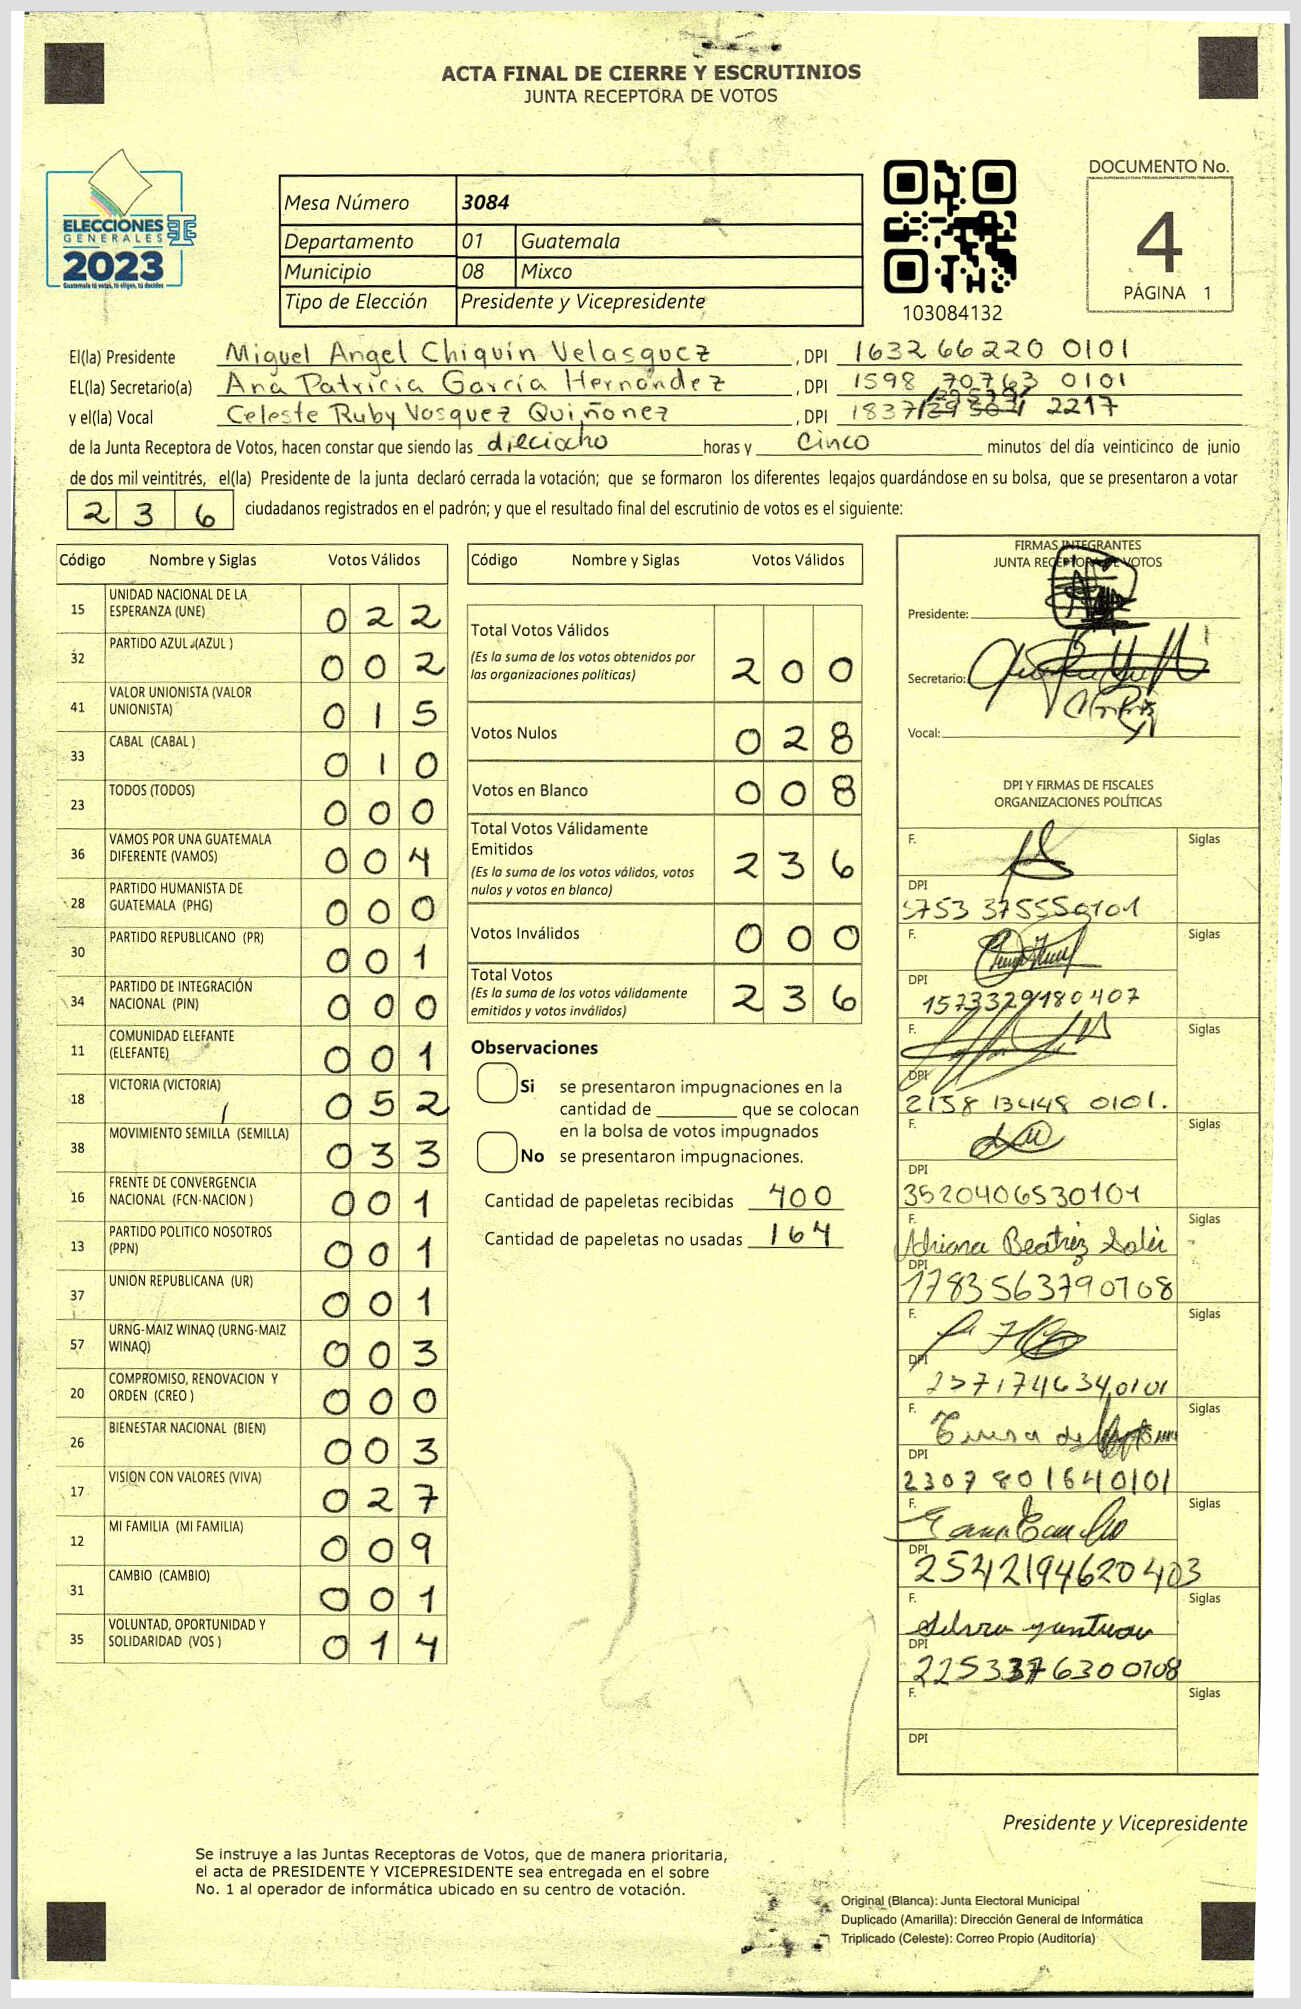 ACTA FINAL DE CIERRE Y ESCRUTINIOS
JUNTA RECEPTORA DE VOTOS
ELECCIONES
GENERALES
2023
Guatemala tú votas, tú eliges, tú decides
Mesa Número 3084
Departamento 01 Guatemala
Municipio 08 Mixco
Tipo de Elección Presidente y Vicepresidente
103084132
DOCUMENTO No.
4
PÁGINA 1
El(la) Presidente Miguel Angel Chiquín Velasquez, DPI 1632 66220 0101
EL(la) Secretario(a) Ana Patricia García Hernández, DPI 1598 70763 0101
y el(la) Vocal Celeste Ruby Vasquez Quiñonez, DPI 1837 2217
de la Junta Receptora de Votos, hacen constar que siendo las dieciocho horas y cinco minutos del día veinticinco de junio
de dos mil veintitrés, el(la) Presidente de la junta declaró cerrada la votación; que se formaron los diferentes legajos guardándose en su bolsa, que se presentaron a votar
236 ciudadanos registrados en el padrón; y que el resultado final del escrutinio de votos es el siguiente:
Código Nombre y Siglas Votos Válidos
15 UNIDAD NACIONAL DE LA ESPERANZA (UNE) 022
32 PARTIDO AZUL (AZUL ) 002
41 VALOR UNIONISTA (VALOR UNIONISTA) 015
33 CABAL (CABAL ) 010
23 TODOS (TODOS) 000
36 VAMOS POR UNA GUATEMALA DIFERENTE (VAMOS) 004
28 PARTIDO HUMANISTA DE GUATEMALA (PHG) 000
30 PARTIDO REPUBLICANO (PR) 001
34 PARTIDO DE INTEGRACIÓN NACIONAL (PIN) 000
11 COMUNIDAD ELEFANTE (ELEFANTE) 001
18 VICTORIA (VICTORIA) 052
38 MOVIMIENTO SEMILLA (SEMILLA) 033
16 FRENTE DE CONVERGENCIA NACIONAL (FCN-NACION ) 001
13 PARTIDO POLITICO NOSOTROS (PPN) 001
37 UNION REPUBLICANA (UR) 001
57 URNG-MAIZ WINAQ (URNG-MAIZ WINAQ) 003
20 COMPROMISO, RENOVACION Y ORDEN (CREO ) 000
26 BIENESTAR NACIONAL (BIEN) 003
17 VISION CON VALORES (VIVA) 027
12 MI FAMILIA (MI FAMILIA) 009
31 CAMBIO (CAMBIO) 001
35 VOLUNTAD, OPORTUNIDAD Y SOLIDARIDAD (VOS ) 014
Código Nombre y Siglas Votos Válidos
Total Votos Válidos
(Es la suma de los votos obtenidos por
las organizaciones políticas) 200
Votos Nulos 028
Votos en Blanco 008
Total Votos Válidamente
Emitidos
(Es la suma de los votos válidos, votos
nulos y votos en blanco) 236
Votos Inválidos 000
Total Votos
(Es la suma de los votos válidamente
emitidos y votos inválidos) 236
Observaciones
Si se presentaron impugnaciones en la
cantidad de ________ que se colocan
en la bolsa de votos impugnados
No se presentaron impugnaciones.
Cantidad de papeletas recibidas 400
Cantidad de papeletas no usadas 164
FIRMAS INTEGRANTES
JUNTA RECEPTORA DE VOTOS
Presidente:
Secretario:
Vocal:
DPI Y FIRMAS DE FISCALES
ORGANIZACIONES POLÍTICAS
F. Siglas
DPI
F. Siglas
DPI
1573329180407
F. Siglas
DPI
2158 13448 0101.
F. Siglas
DPI
3520406530101
F. Siglas
Adriana Beatriz
DPI
1783563790708
F. Siglas
DPI
F. Siglas
DPI
2307 801640101
F. Siglas
DPI
2542194620403
F. Siglas
DPI
2253376300708
F. Siglas
DPI
Presidente y Vicepresidente
Se instruye a las Juntas Receptoras de Votos, que de manera prioritaria,
el acta de PRESIDENTE Y VICEPRESIDENTE sea entregada en el sobre
No. 1 al operador de informática ubicado en su centro de votación.
Original (Blanca): Junta Electoral Municipal
Duplicado (Amarilla): Dirección General de Informática
Triplicado (Celeste): Correo Propio (Auditoría)